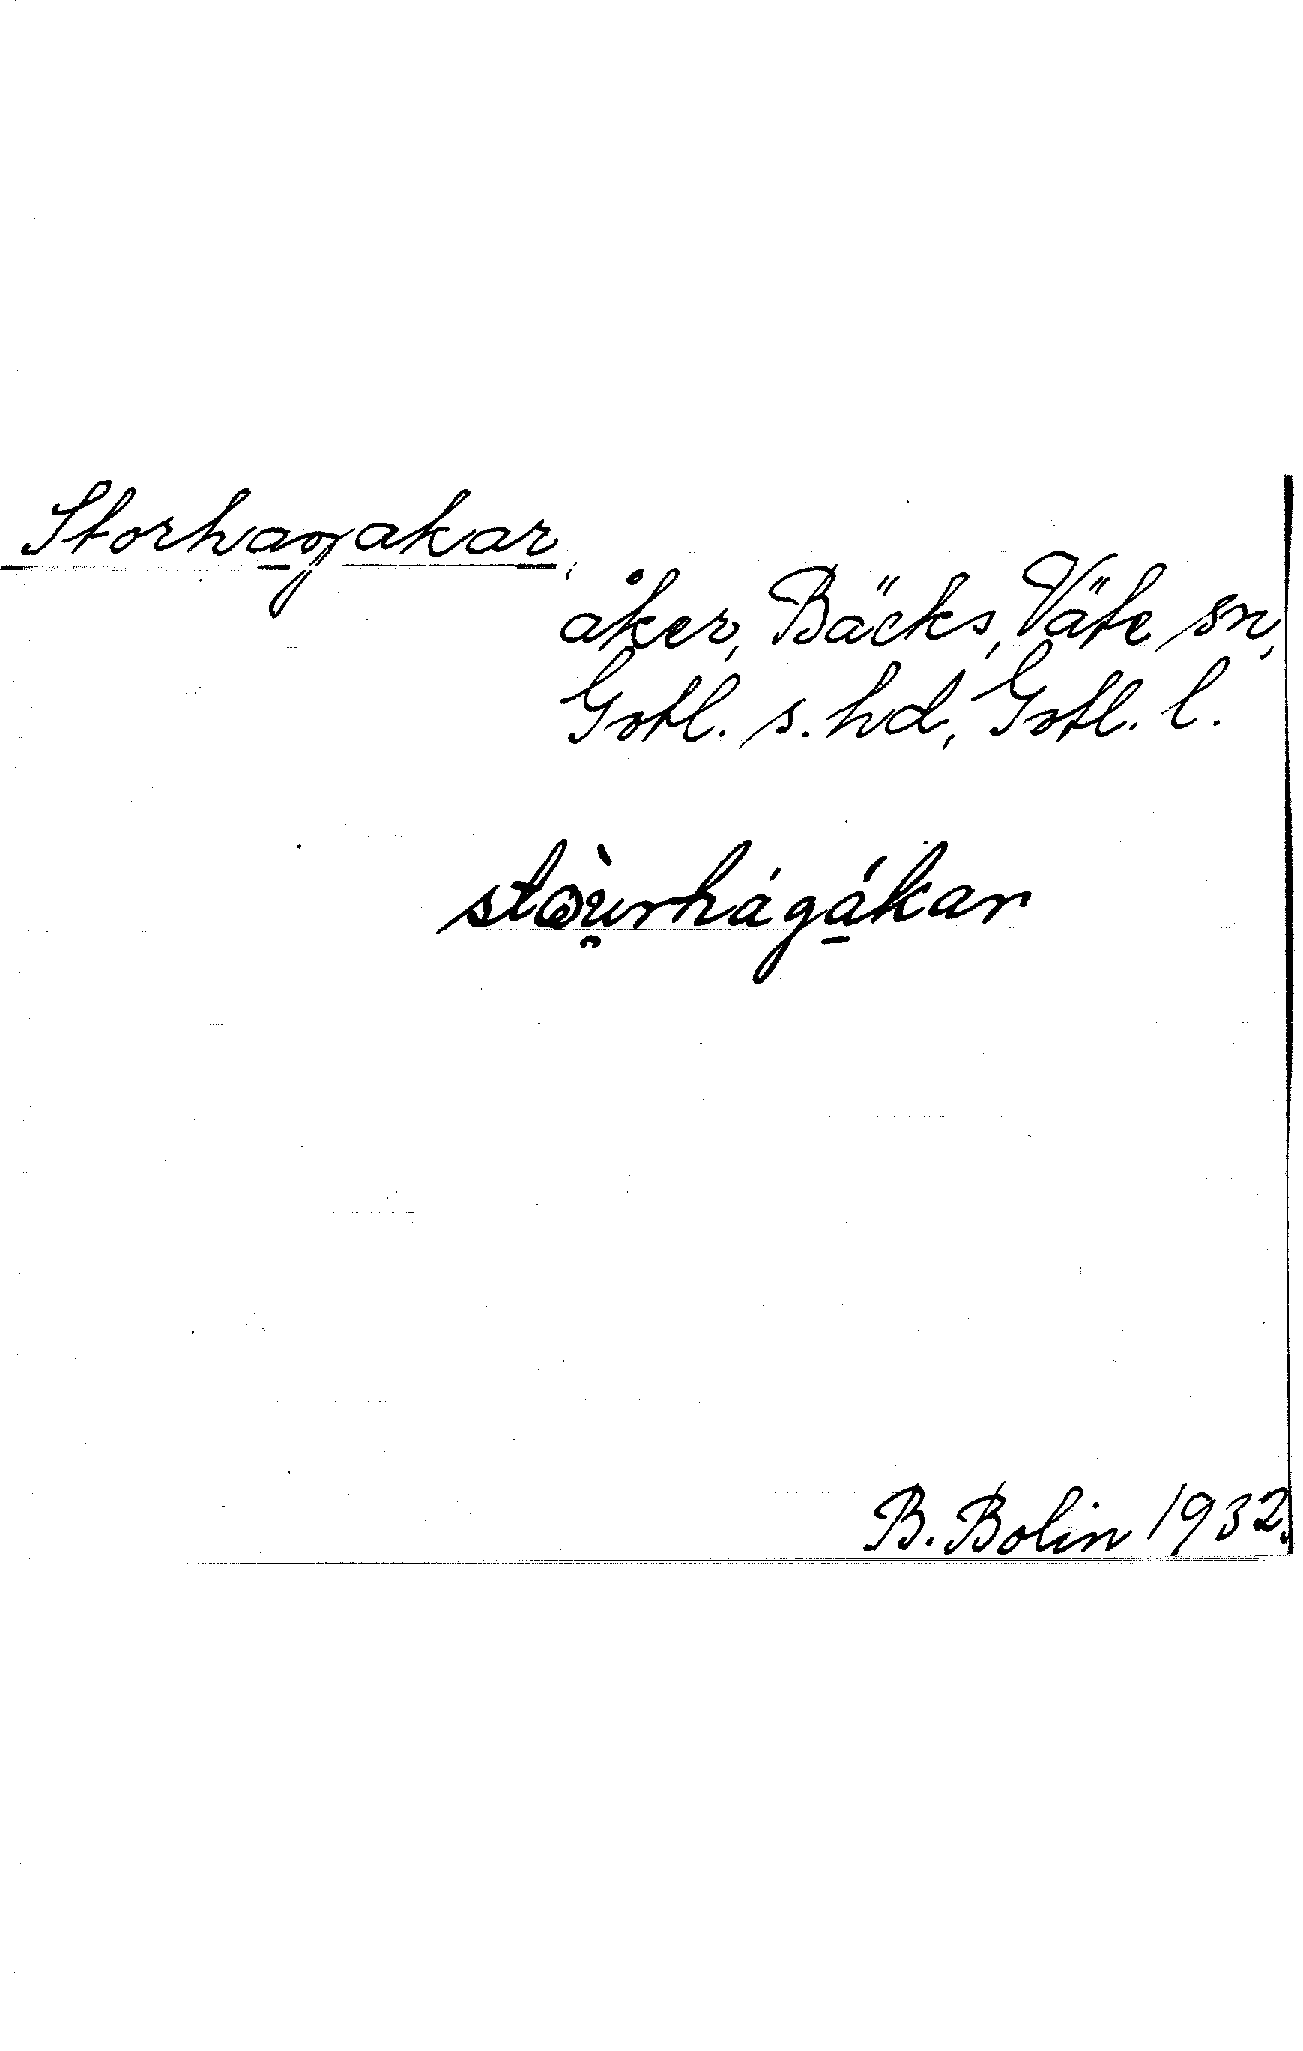 Storhagakar,
åker, Bäcks, Väte sn,
Gotl. s. hd, Gotl. l.
stɷ̀u̯rhágá̱kar
B. Bolin 1932.